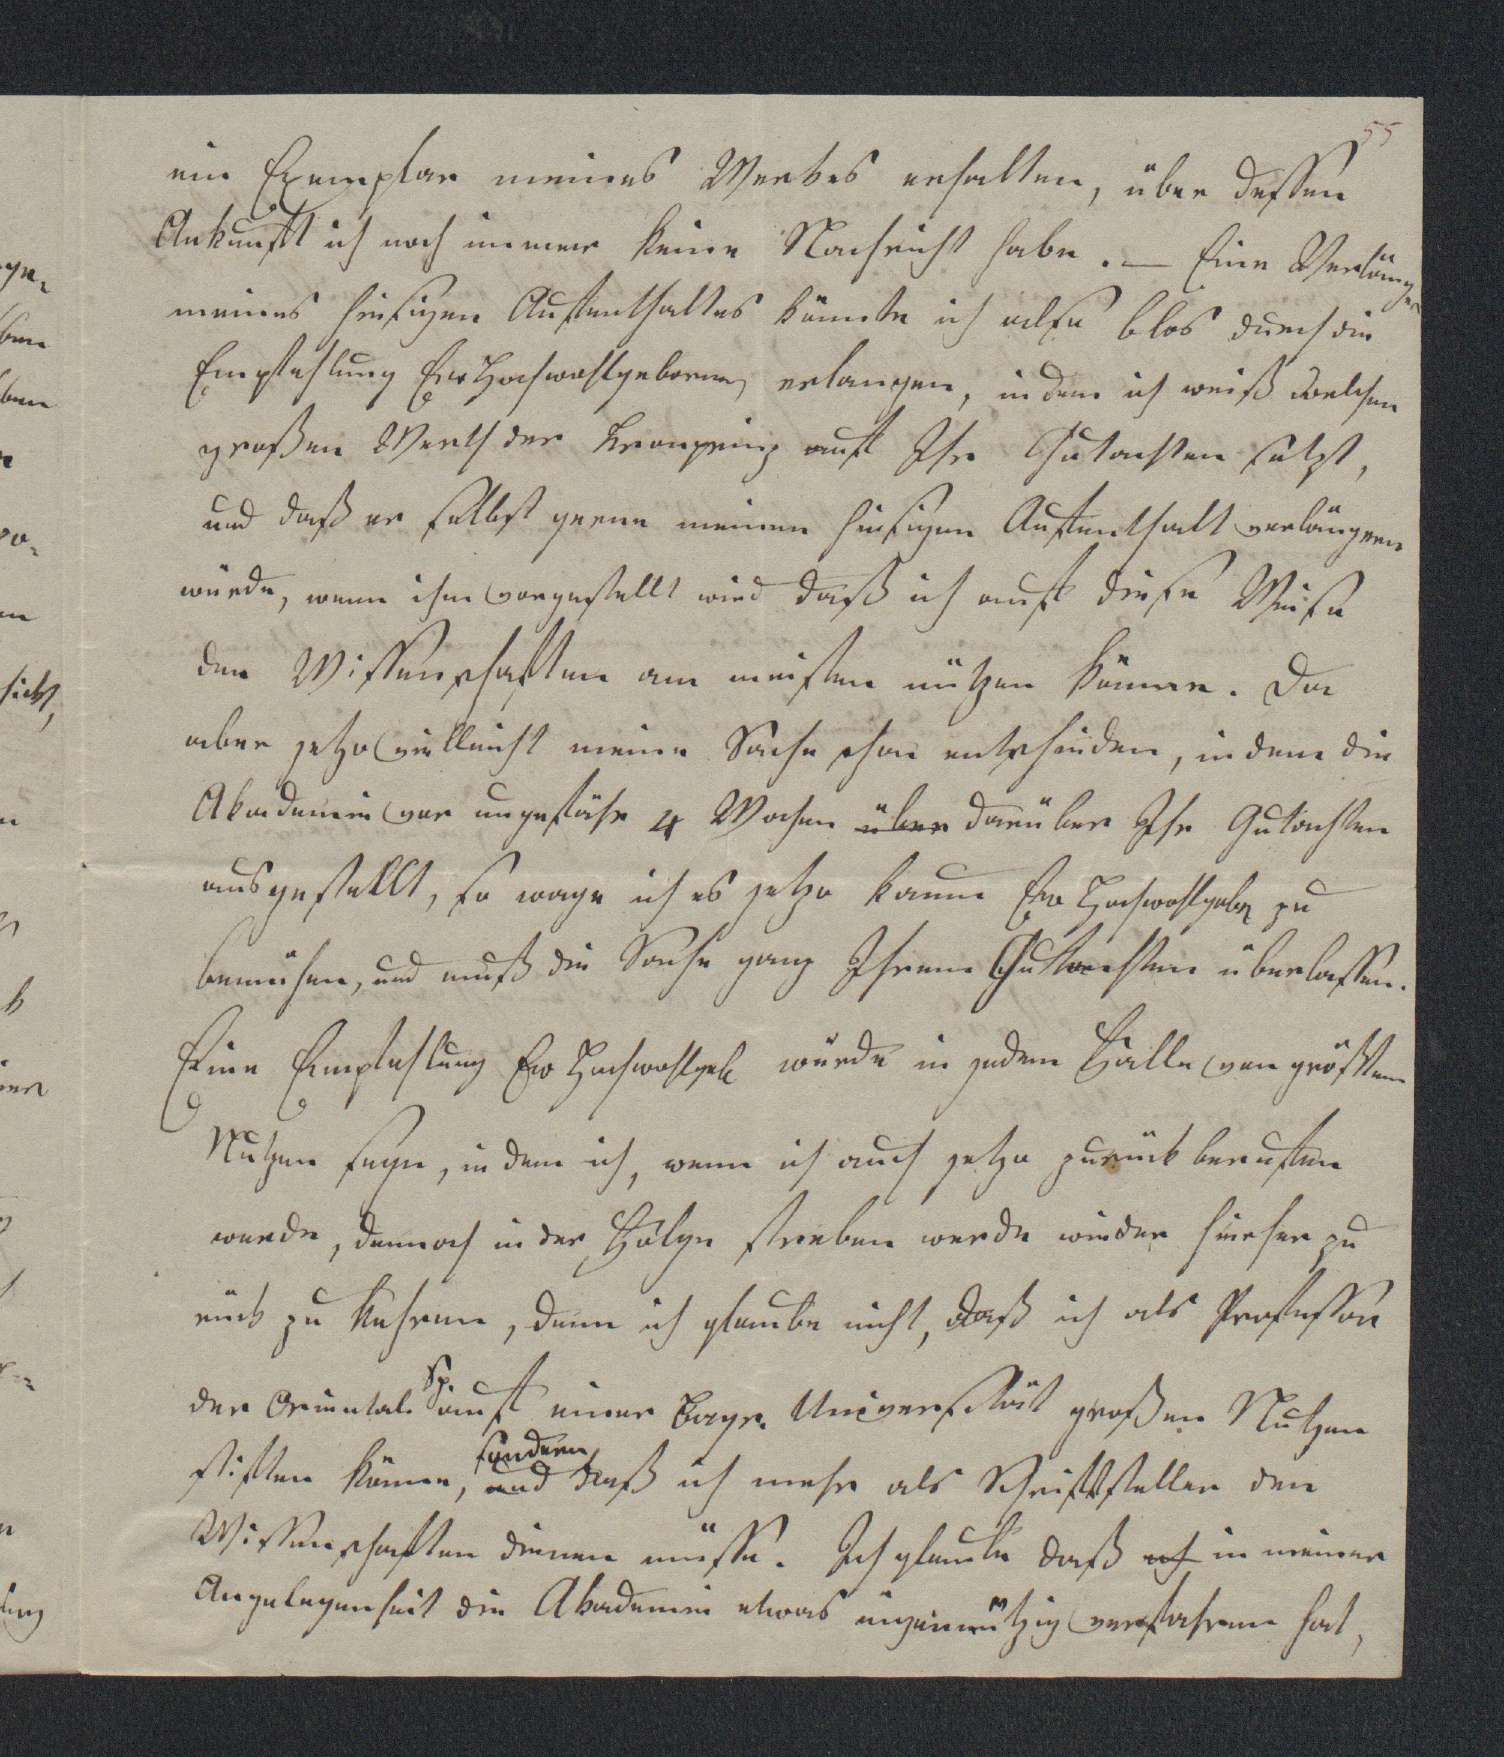 55
ein Exemplar meines Werkes erhalten, über dessen
Ankunft ich noch immer keine Nachricht habe. — Eine Verlänger
meines hiesigen Aufenthaltes könnte ich also blos durch die
Empfehlung Ew Hochwohlgeboren erlangen, indem ich weiß welchen
großen Werth der Kronprinz auf Ihr Gutachten setzt,
und daß er selbst gerne meinen hiesigen Aufenthalt verlängern
würde, wenn ihm vorgestellt wird daß ich auf diese Weise
den Wissenschaften am meisten nützen könne. Da
aber jetzo vielleicht meine Sache schon entschieden, in dem die
Akademie vor ungefähr 4 Wochen über darüber Ihr Gutachten
ausgestellt, so wage ich es jetzo kaum Ew Hochwohlgeb zu
bemühen, und muß die Sache ganz Ihrem Gutachten überlassen.
Eine Empfehlung Ew Hochwohlgeb würde in jedem Falle von größtem
Nutzen seyn, in dem ich, wenn ich auch jetzo zurück berufen
werde, dennoch in der Folge streben werde wieder hierher zu
rück zu kehren, denn ich glaube nicht, daß ich als Professor
der Oriental. Sp. auf einer Bayr. Universität großen Nutzen
stiften könne, und sondern daß ich mehr als Schriftsteller den
Wissenschaften dienen müsse. Ich glaube daß in meiner
Angelegenheit die Akademie etwas eigennützig verfahren hat,